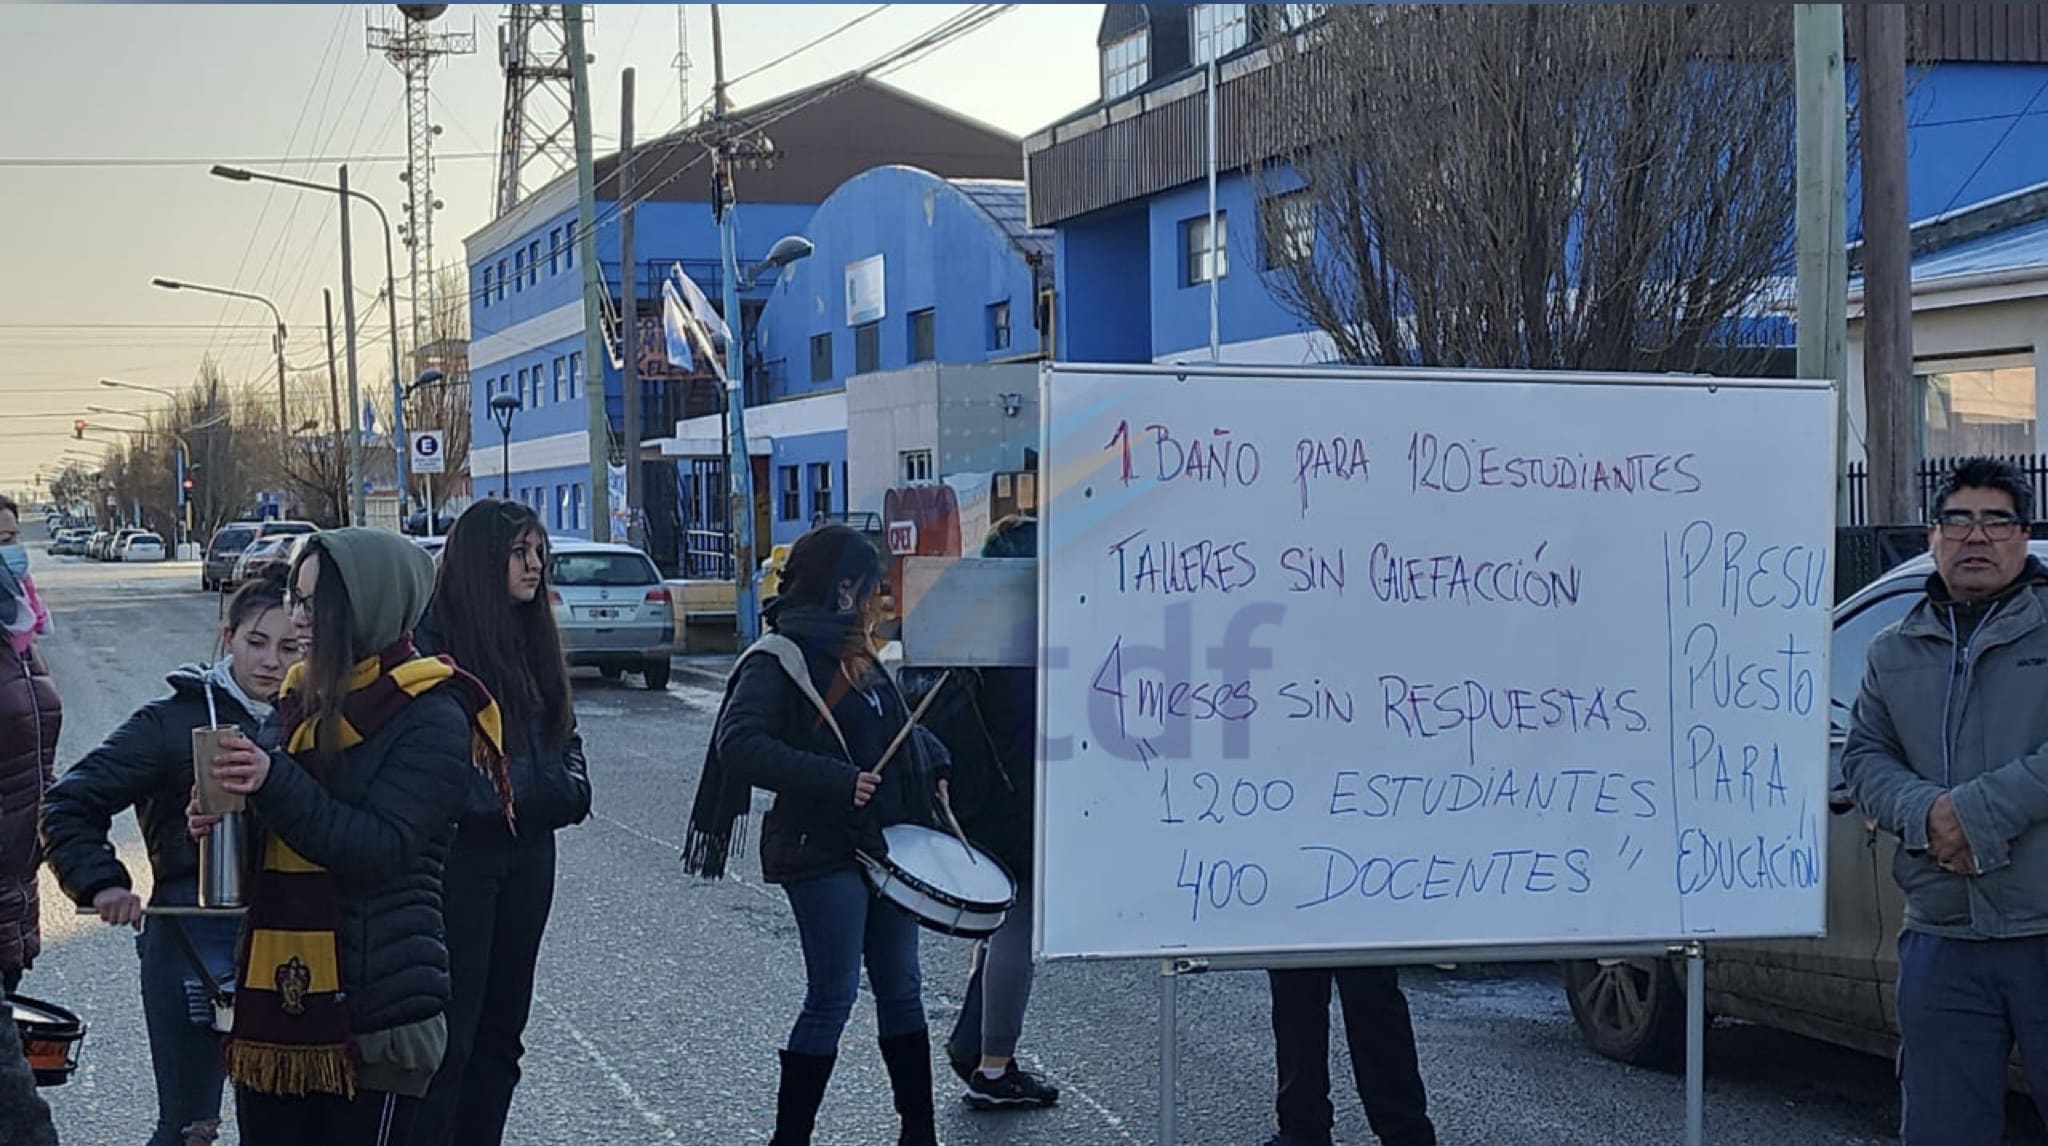 1 BAÑO PARA 120 ESTUDIANTES
TALLERES SIN CALEFACCIÓN
4 meses SIN RESPUESTAS.
"1200 ESTUDIANTES
400 DOCENTES"
PRESU
PUESTO
PARA
EDUCACIÓN
tdf
E